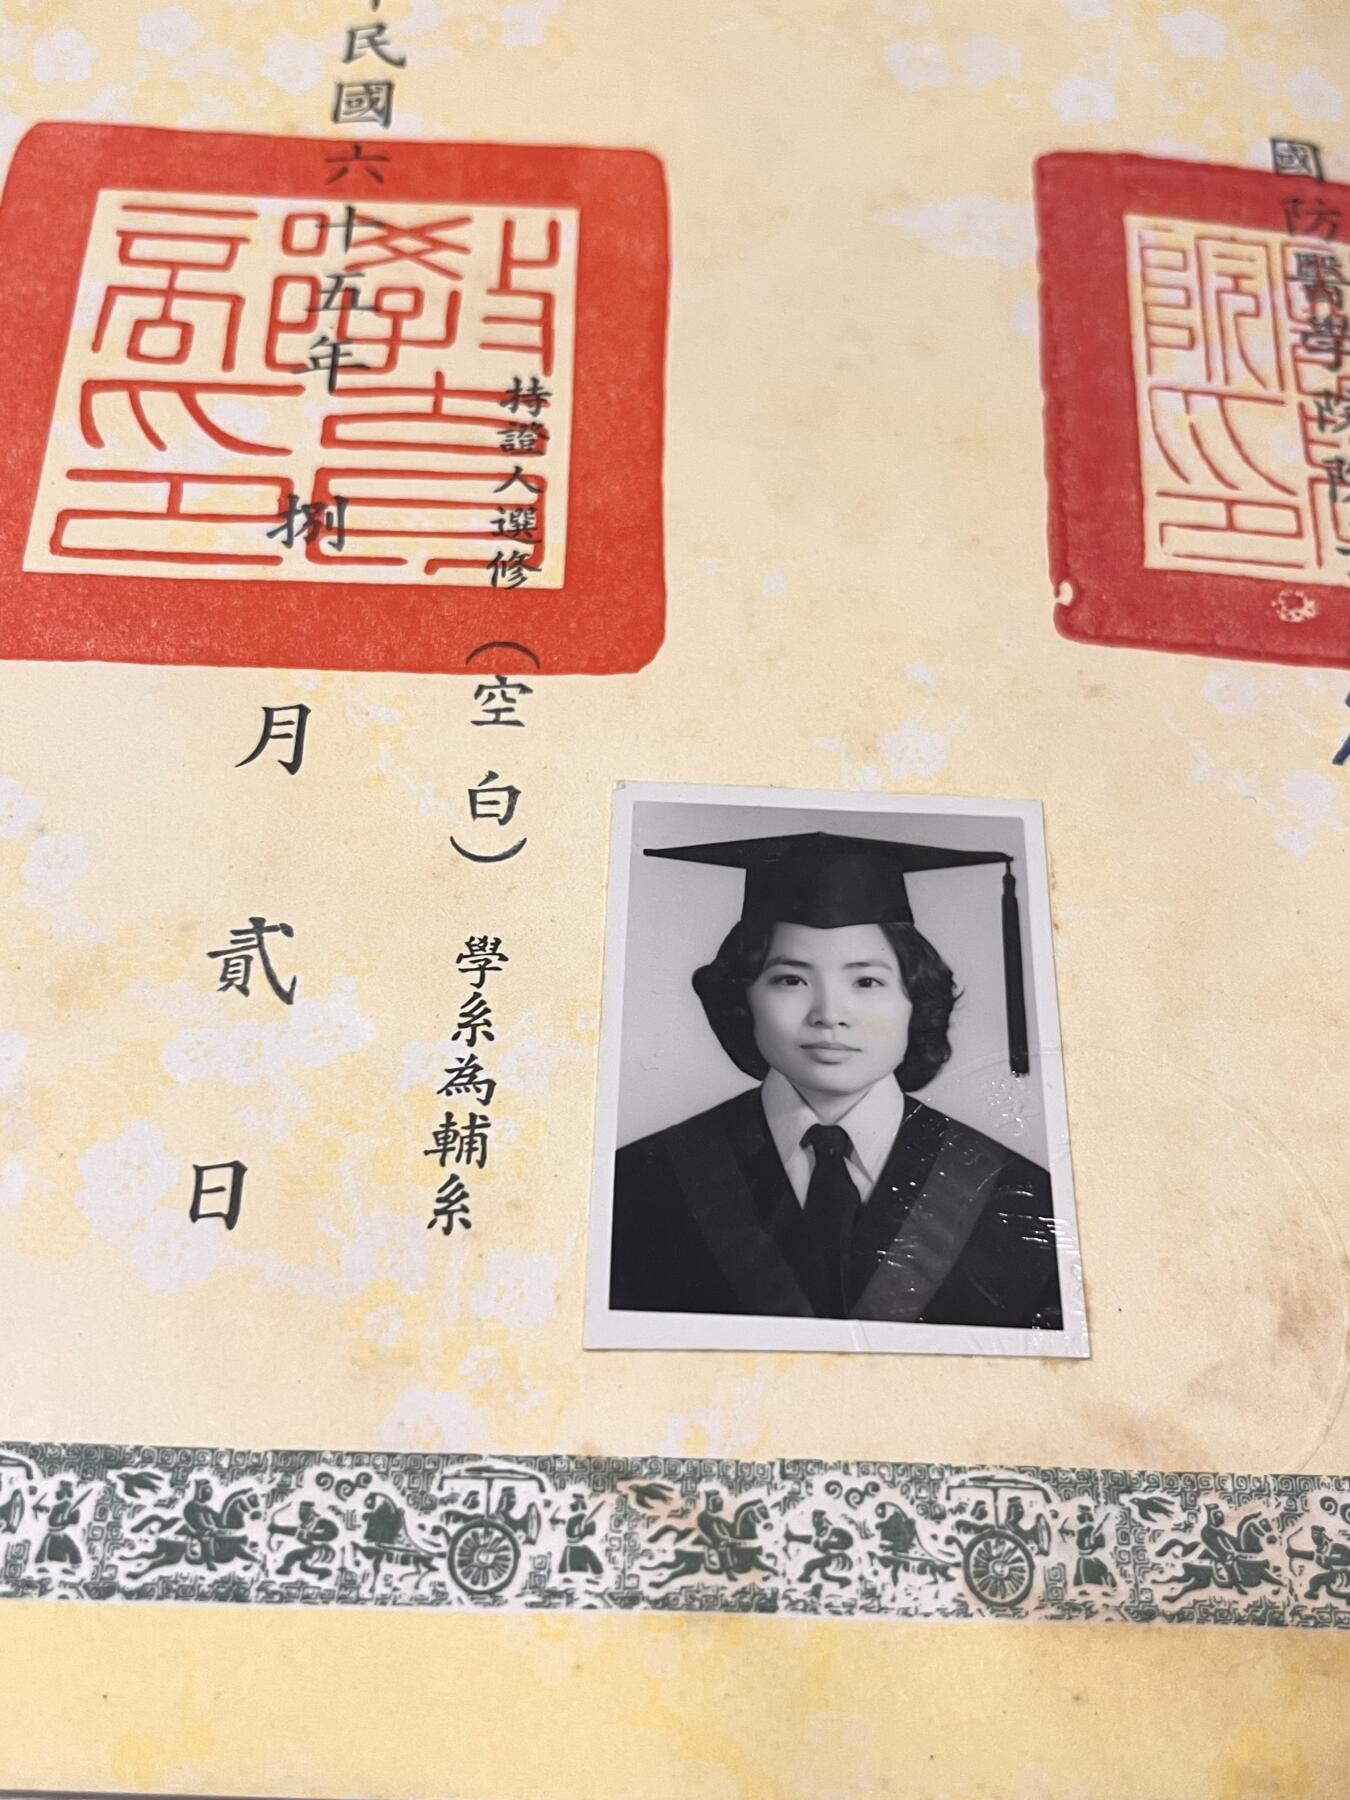 國防醫學院院
持證人選修（空白）學系為輔系
民國六十五年捌月貳日